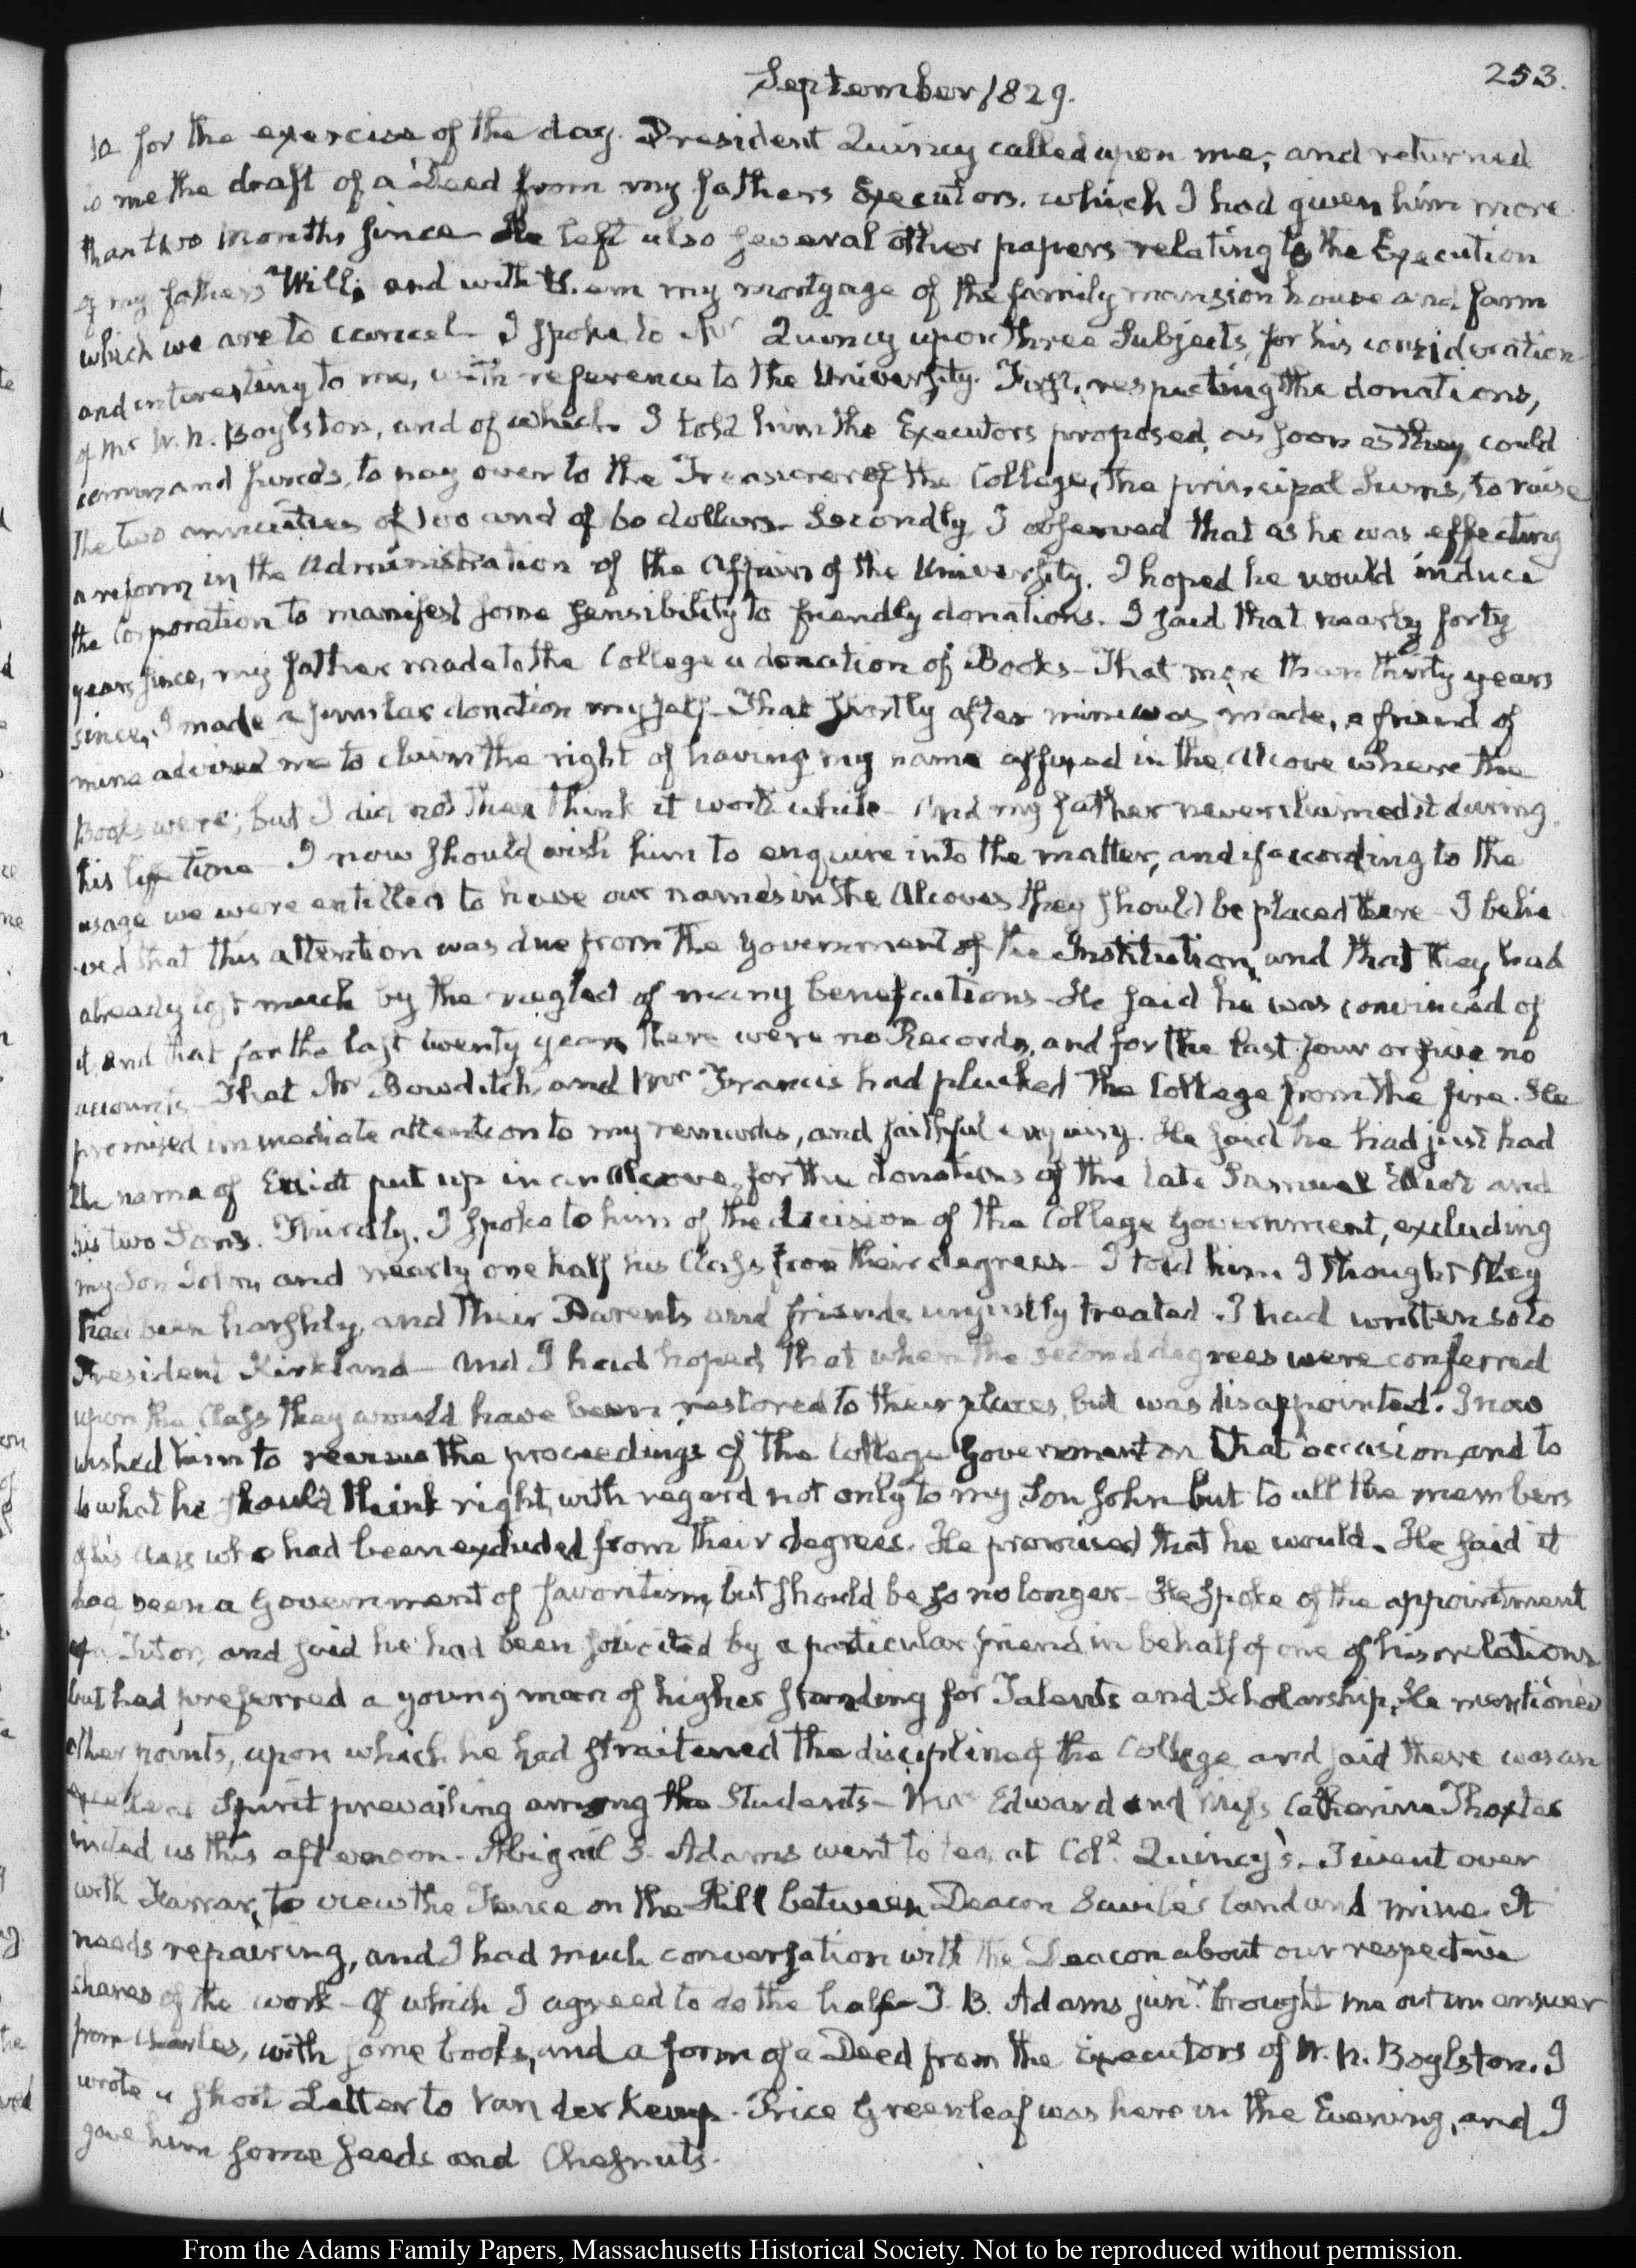 September 1829.
253.
for the exercise of the day. President Quincy called upon me, and returned
to me the draft of a Deed from my fathers Executors, which I had given him more
than two Months since. He left also several other papers relating to the Execution
of my father's Will; and with them my mortgage of the family mansion house and farm
which we are to cancel. I spoke to Mr Quincy upon three Subjects, for his consideration
and interesting to me, with reference to the University. First, respecting the donations,
of Mr W. N. Boylston, and of which I told him the Executors proposed, as soon as they could
command funds, to pay over to the Treasurer of the College, the principal Sums, to raise
the two annuities of 100 and of 60 dollars. Secondly I observed that as he was effecting
a reform in the Administration of the Affairs of the University. I hoped he would induce
the Corporation to manifest some sensibility to friendly donations. I said that nearly forty
years since, my father made to the College a donation of Books—That more than thirty years
since, I made a similar donation myself—That shortly after mine was made, a friend of
mine advised me to claim the right of having my name affixed in the Alcove where the
Books were; but I did not then think it worth while—And my father never claimed it during
his life time—I now should wish him to enquire into the matter, and if according to the
usage we were entitled to have our names in the Alcoves they should be placed there—I belie
ved that this attention was due from the Government of the Institution, and that they had
already lost much by the neglect of many benefactions—He said he was convinced of
it and that for the last twenty years there were no Records, and for the last four or five no
accounts—That Mr Bowditch, and Mr Francis had plucked the College from the fire. He
promised immediate attention to my remarks, and faithful enquiry. He said he had just had
the name of Eliot put up in an Alcove, for the donations of the late Samuel Eliot and
his two Sons. Thirdly, I spoke to him of the decision of the College Government, excluding
my Son John, and nearly one half his Class from their degrees—I told him I thought they
had been harshly, and their Parents and friends unjustly treated. I had written so to
President Kirkland—and I had hoped that when the second degrees were conferred
upon the Class they would have been restored to their places, but was disappointed. I now
wished him to review the proceedings of the College Government on that occasion, and to
do what he should think right, with regard not only to my Son John but to all the members
of his Class who had been excluded from their degrees. He promised that he would. He said it
had been a Government of favoritism, but should be so no longer—He spoke of the appointment
of a Tutor, and said he had been solicited by a particular friend in behalf of one of his relations
but had preferred a young man of higher standing for Talents and Scholarship. He mentioned
other points, upon which he had straitened the discipline of the College and said there was an
excellent Spirit prevailing among the Students—Mrs Edward and Miss Catherine Thaxter
visited us this afternoon. Abigail S. Adams went to tea at Col. Quincy's. I went over
with Farrar, to view the Fence on the Hill between Deacon Savile's land and mine. It
needs repairing, and I had much conversation with the Deacon about our respective
shares of the work—Of which I agreed to do the half—T. B. Adams junr. brought me out an answer
from Charles, with some books, and a form of a Deed from the Executors of W. N. Boylston. I
wrote a short Letter to Van der Kemp. Price Greenleaf was here in the Evening, and I
gave him some seeds and Chesnuts.
From the Adams Family Papers, Massachusetts Historical Society. Not to be reproduced without permission.